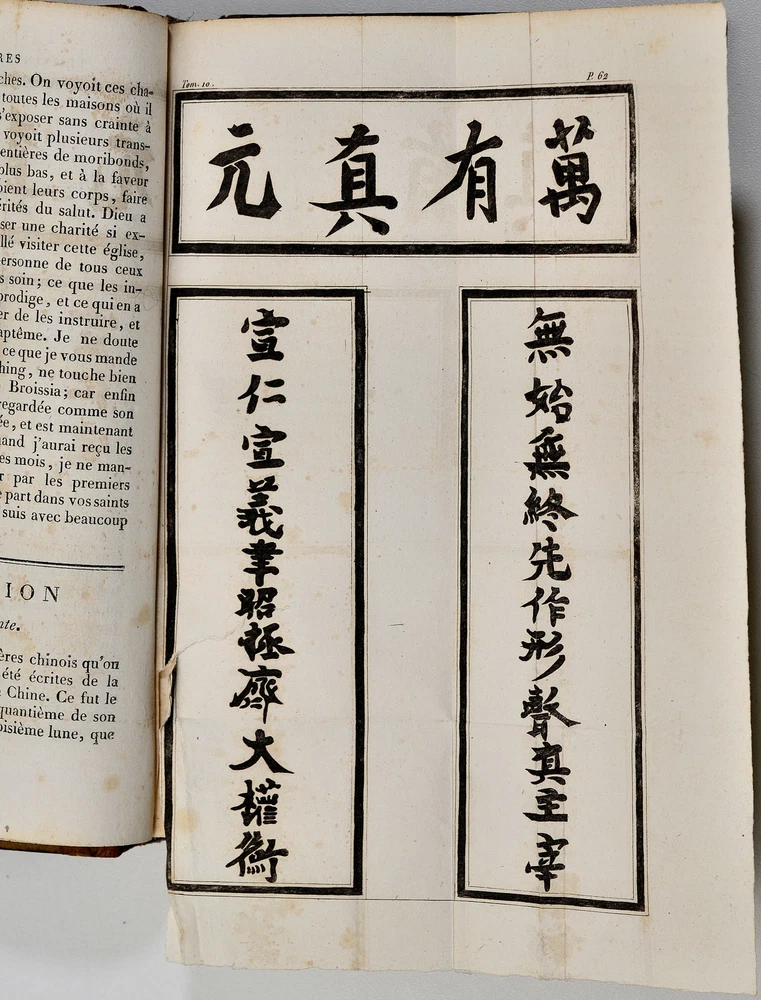 RES
ches. On voyoit ces cha-
toutes les maisons où il
s'exposer sans crainte à
voyoit plusieurs trans-
entières de moribonds,
plus bas, et à la faveur
oient leurs corps, faire
érités du salut. Dieu a
ser une charité si ex-
llé visiter cette église,
ersonne de tous ceux
s soin; ce que les in-
prodige, et ce qui en a
er de les instruire, et
aptême. Je ne doute
ce que je vous mande
hing, ne touche bien
Broissia; car enfin
regardée comme son
ée, et est maintenant
uand j'aurai reçu les
es mois, je ne man-
r par les premiers
part dans vos saints
suis avec beaucoup
ION
nte.
ères chinois qu'on
été écrites de la
Chine. Ce fut le
quantième de son
oisième lune, que
Tom. 10.
P. 62
萬有真元
無始無終先作形聲真主宰
宣仁宣義聿昭拯濟大權衡